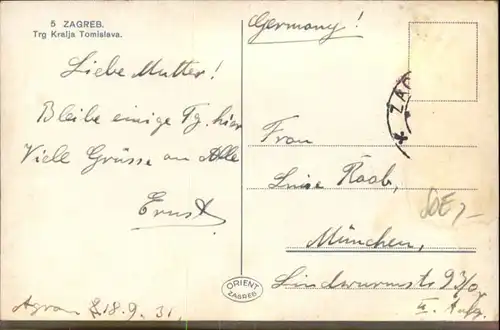 5 ZAGREB.
Trg Kralja Tomislava.
Liebe Mutter!
Bleibe einige Tg. hier
Viele Grüsse an Alle
Ernst
Agram 18.9.31.
ORIENT
ZAGREB
Germany!
Frau
Luise Raab,
München,
Lindwurmstr 93/0
II. Aufg.